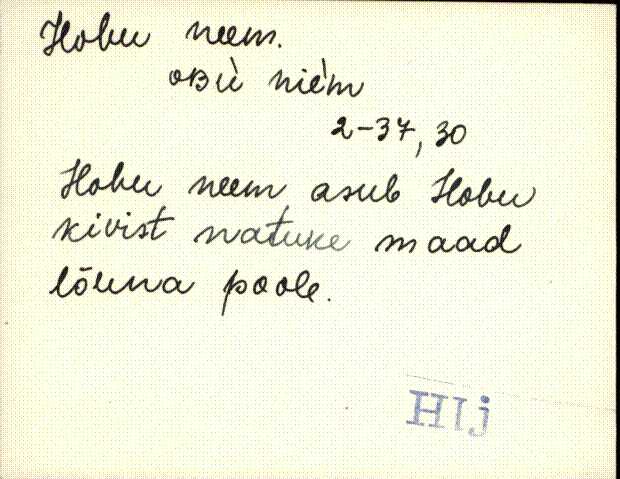 Hobu neem.
oʙù nìe̬m
2-37, 30
Hobu neem asub Hobu
kivist natuke maad
lõuna poole.
HIj